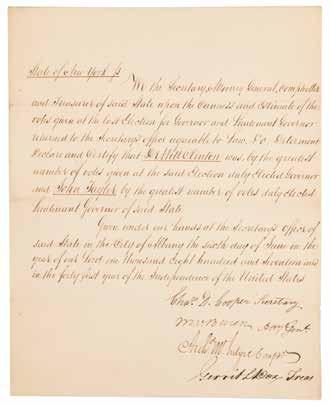 State of New York ss
We the Secretary, Attorney General, Comptroller
and Treasurer of said State upon the Canvass and Estimate of the
votes given at the last Election for Governor and Lieutenant Governor
returned to the Secretarys office agreeable to Law, Do, Determine
Declare and Certify that De Witt Clinton was by the greatest
number of votes given at the said Election duly Elected Governor
and John Tayler by the greatest number of votes duly elected
Lieutenant Governor of said State.
Given under our hands at the Secretarys Office of
said State in the City of Albany the sixth day of June in the
year of our Lord one thousand Eight hundred and seventeen and
in the forty first year of the Independence of the United States
Chas. D. Cooper Secretary
M. V. Buren Atty Genl
Archd. McIntyre Compr
Gerrit L Dox Treas